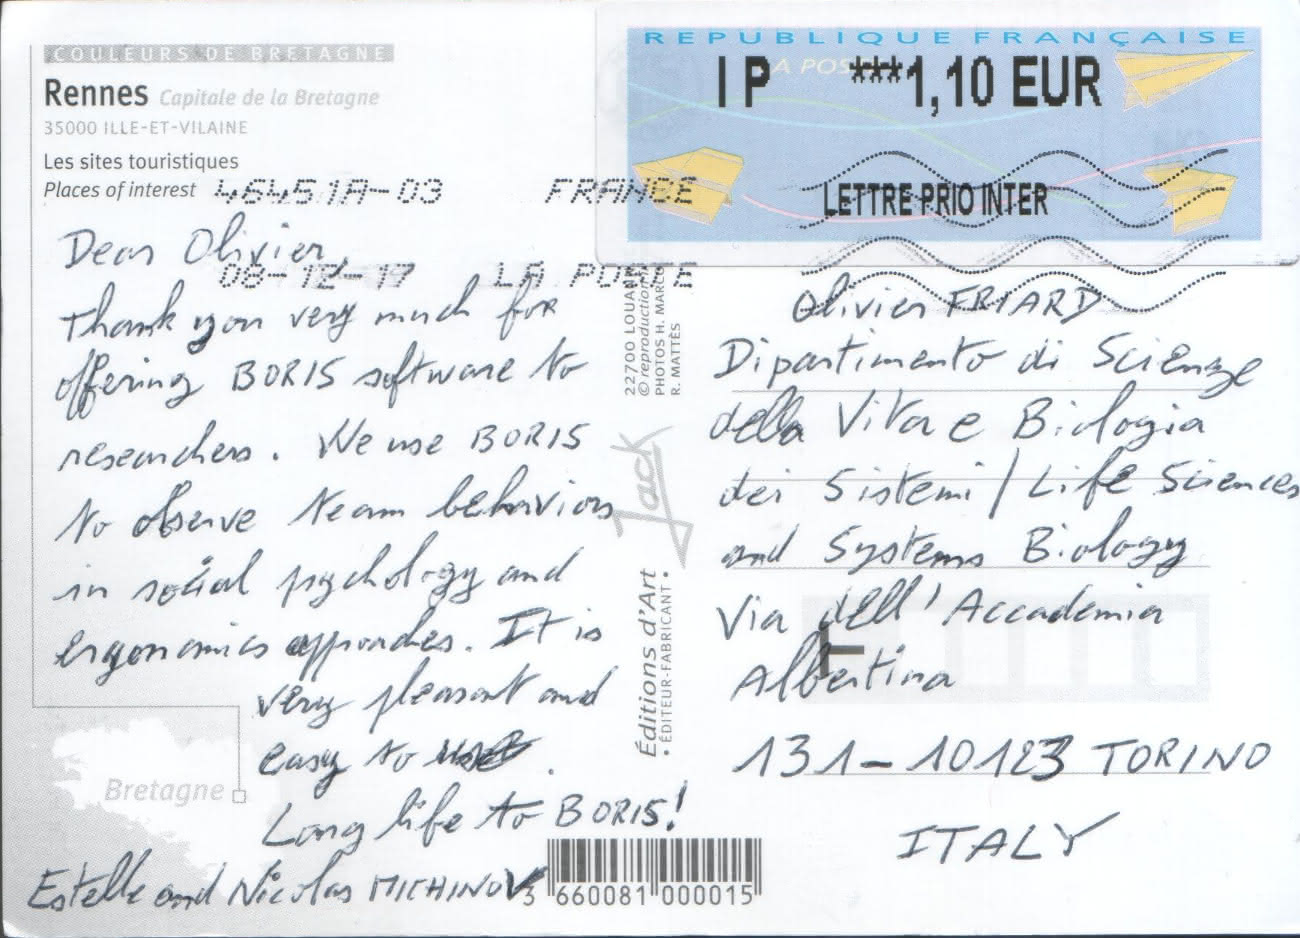 COULEURS DE BRETAGNE
Rennes Capitale de la Bretagne
35000 ILLE-ET-VILAINE
Les sites touristiques
Places of interest
46451A-03 FRANCE
08-12-17 LA POSTE
REPUBLIQUE FRANÇAISE
LA POSTE
IP ***1,10 EUR
LETTRE PRIO INTER
Dear Olivier,
Thank you very much for
offering BORIS software to
researchers. We use BORIS
to observe team behaviors
in social psychology and
ergonomics approaches. It is
very pleasant and
easy to use.
Long life to BORIS!
Estelle and Nicolas MICHINOV
22700 LOUANNEC
© reproduction
PHOTOS H. MARCOU
R. MATTÈS
Jack
Éditions d'Art
• ÉDITEUR-FABRICANT •
Olivier FRIARD
Dipartimento di Scienze
della Vita e Biologia
dei Sistemi / Life Sciences
and Systems Biology
Via dell'Accademia
Albertina
131-10123 TORINO
ITALY
T
Bretagne
3 660081 000015